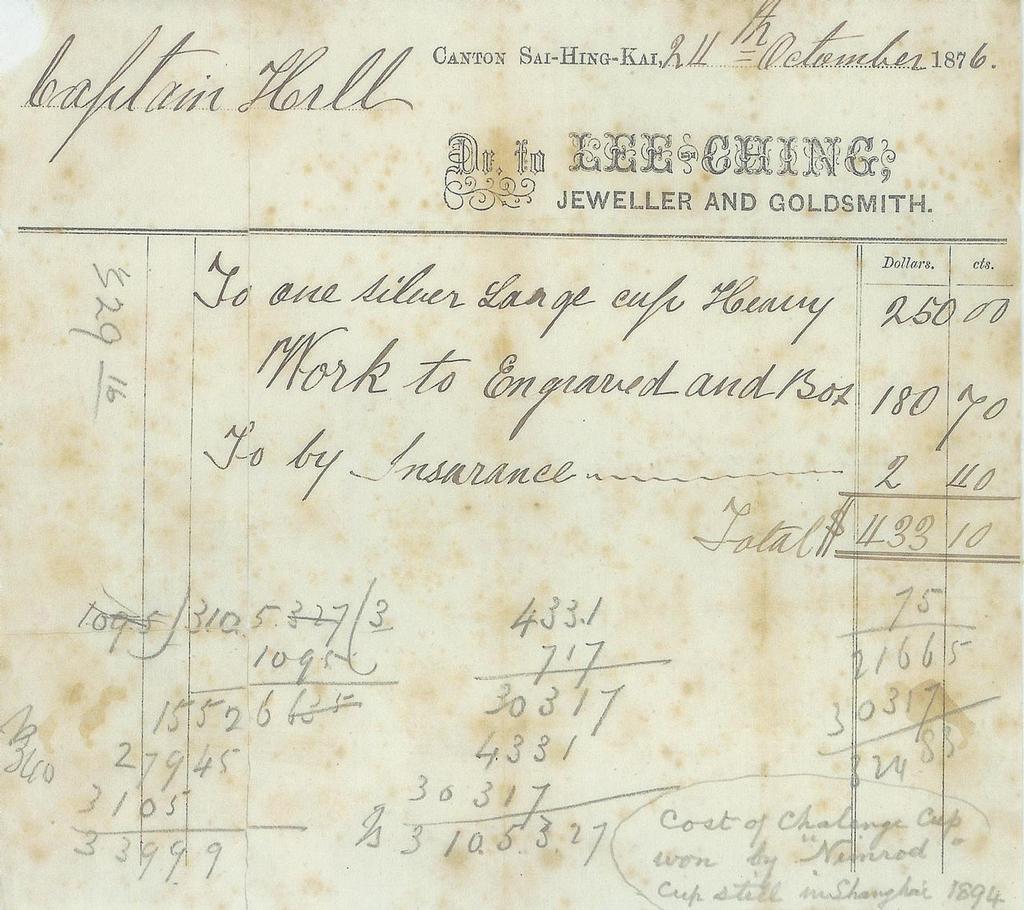 Captain Hill
CANTON SAI-HING-KAI, 24th October 1876.
Dr. to LEE-CHING,
JEWELLER AND GOLDSMITH.
Dollars. cts.
To one silver Large cup Heavy 250 00
Work to Engraved and Box 180 70
To by Insurance 2 40
Total $ 433 10
529 16
1095) 310.5.327 (3
1095
1552 6635
27945
3105
33999
340
4331
717
30317
4331
30317
310.53.27
75
21665
30317
324 83
Cost of Chalenge Cup
won by "Nimrod"
Cup still in Shanghai 1894